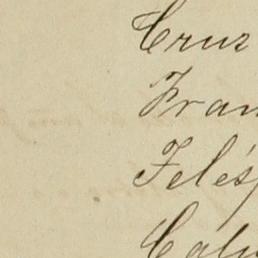 Cruz
Fran
Telés
Cal